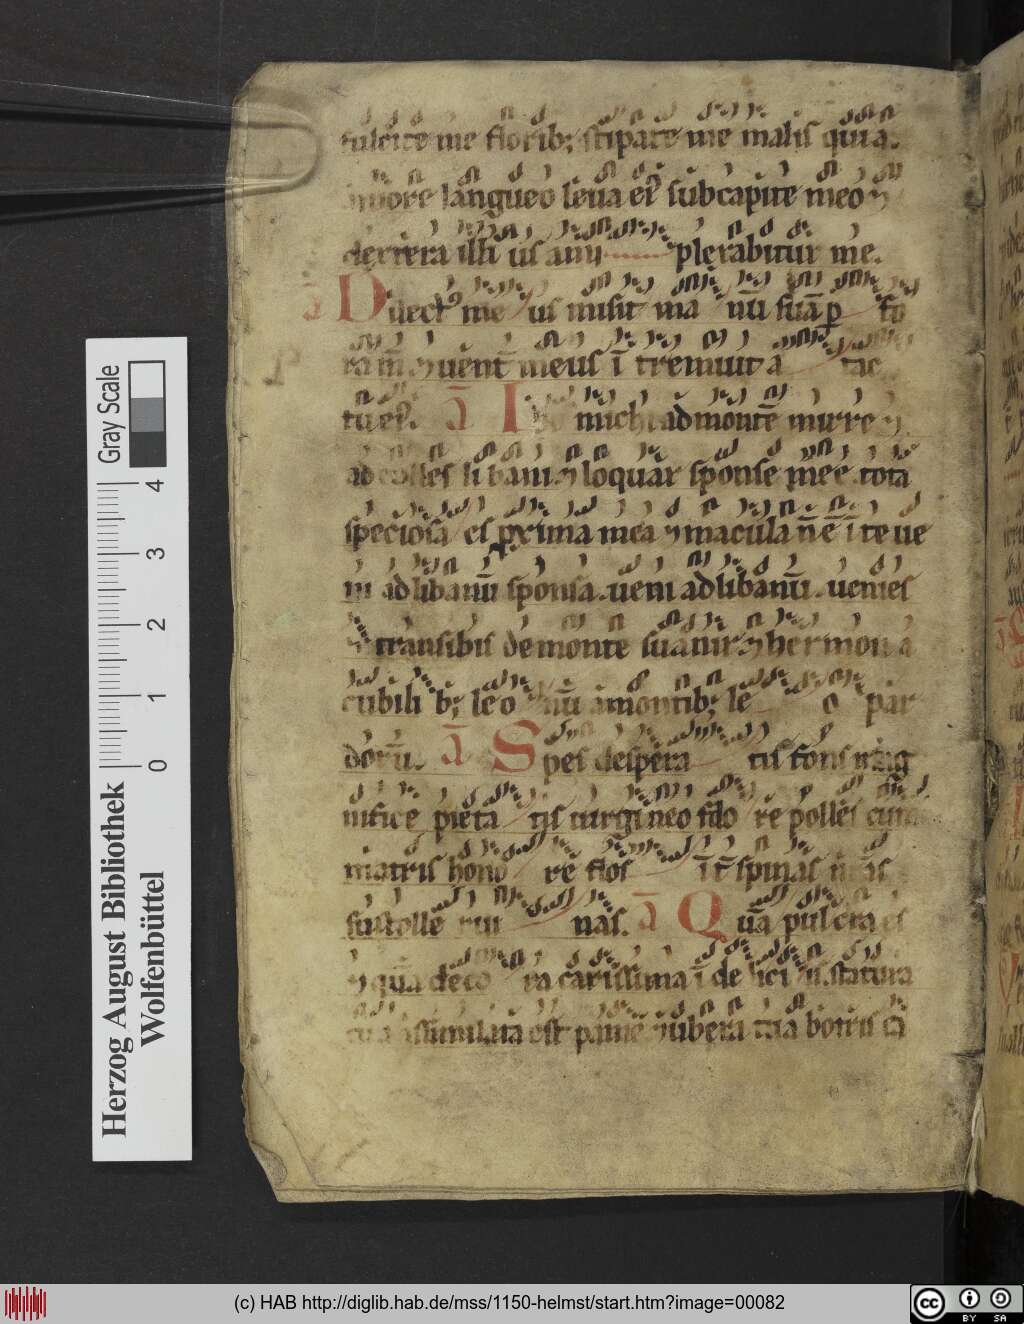 fulcite me florib; stipate me malis quia a.
more langueo leua eiꝰ sub capite meo ⁊
dextera illi us am plexabitur me.
ā Dilectꝰ me us misit ma nū suā p̱ fo
ra m̄ ⁊ uent̄ meus ī tremuit a tac
tu eiꝰ. ā I bo michi ad montē mirre ⁊
ad colles libani ⁊ loquar sponse mee. tota
speciosa es pxima mea ⁊ macula n̄ ē ī te ue
ni ad libanū sponsa. ueni ad libanū. uenies
⁊ transibis de monte sua nir ⁊ hermon a
cubili b; leo nū a montib; le o par
dorū. ā Spes despera tis fons mag
nifice pieta tis uirgineo flo re polles cum
matris hono re flos īt̄ spinas n̄ras
sustolle rui nas. ā Quā pulcra es
⁊ quā deco ra carissima ī de lici is. statura
tua assimilata est palme ⁊ ubera tua botris ā
Gray Scale
4
3
2
1
0
Herzog August Bibliothek
Wolfenbüttel
(c) HAB http://diglib.hab.de/mss/1150-helmst/start.htm?image=00082
cc BY SA